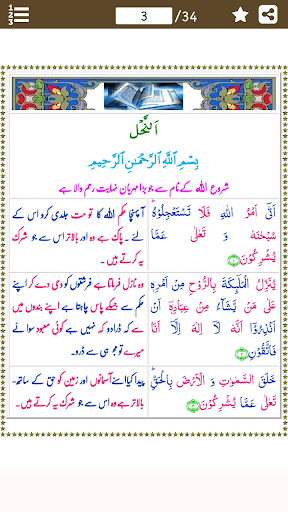 3 /34
اَلنَّحۡل
بِسۡمِ اللّٰهِ الرَّحۡمٰنِ الرَّحِيۡمِ
شروع الله کے نام سے جو بڑا مہربان نہایت رحم والا ہے
اَتٰۤى اَمۡرُ اللّٰهِ فَلَا تَسۡتَعۡجِلُوۡهُ‌ؕ
سُبۡحٰنَهٗ وَ تَعٰلٰى عَمَّا
يُشۡرِكُوۡنَ ﴿۱﴾
آپہنچا حکم الله کا تو مت جلدی کرو اس کے
لئے۔ پاک ہے وہ اور بالاتر اس سے جو شرک
یہ کرتے ہیں۔
يُنَزِّلُ الۡمَلٰۤٮِٕكَةَ بِالرُّوۡحِ مِنۡ اَمۡرِهٖ
عَلٰى مَنۡ يَّشَآءُ مِنۡ عِبَادِهٖۤ اَنۡ
اَنۡذِرُوۡۤا اَنَّهٗ لَاۤ اِلٰهَ اِلَّاۤ اَنَا
فَاتَّقُوۡنِ ﴿۲﴾
وہ نازل فرماتا ہے فرشتوں کو وحی دے کر اپنے
حکم سے جسکے پاس چاہتا ہے اپنے بندوں میں
کہ ڈرادو کہ نہیں ہے کوئی معبود سوائے
میرے تو مجھ ہی سے ڈرو۔
خَلَقَ السَّمٰوٰتِ وَ الۡاَرۡضَ بِالۡحَـقِّ‌ؕ
تَعٰلٰى عَمَّا يُشۡرِكُوۡنَ ﴿۳﴾
پیدا کیا اسنے آسمانوں اور زمین کو حق کے ساتھ۔
بالاتر ہے وہ اس سے جو شرک یہ کرتے ہیں۔